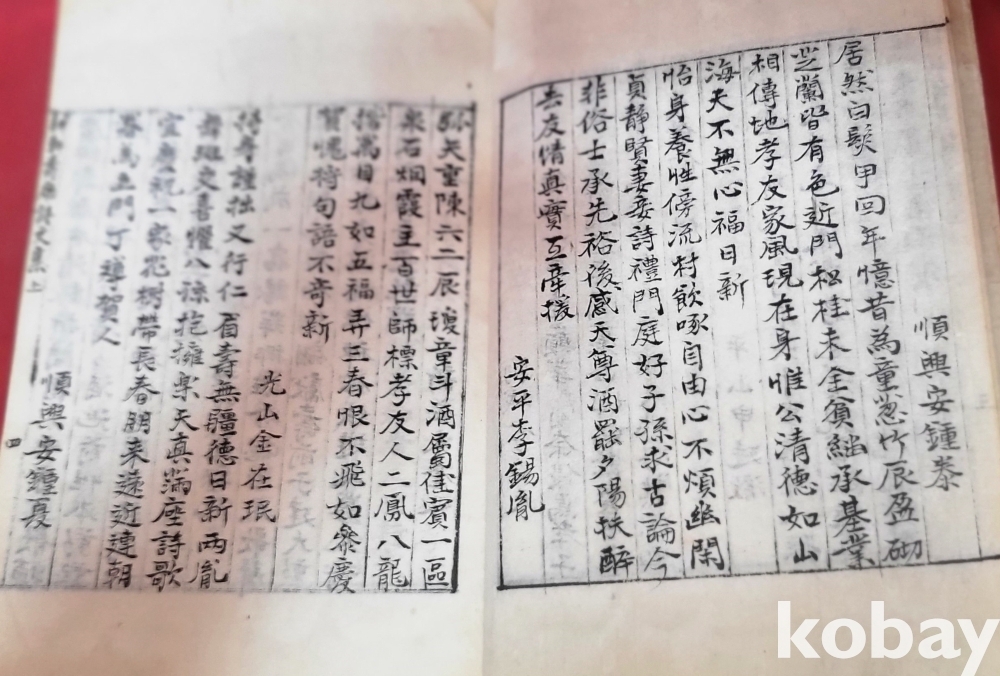 順興安鍾泰
居然白髮甲回年憶昔為童葱竹辰盈砌
芝蘭皆有色近門松桂未全貧繼承基業
相傳地孝友家風現在身惟公清德如山
海天不無心福日新
怡身養性傍流村飲啄自由心不煩幽閑
貞靜賢妻妾詩禮門庭好子孫求古論今
非俗士承先裕後感天尊酒罷夕陽扶醉
去友情真實互牽援
安平李錫胤
弥矢重陳六二辰瓊章斗酒屬佳賓一區
泉石烟霞主百世師標孝友人二鳳八龍
擔萬目九如五福弄三春恨不飛如參慶
賀愧將句語不奇新
光山金在珉
持身謹拙又行仁眉壽無疆德日新兩胤
喜懼八孫抱擁樂天真滿座詩歌
一家花樹帶長春朋來遠近連朝
馬立門丁導賀人
順興安鍾夏
四
kobay